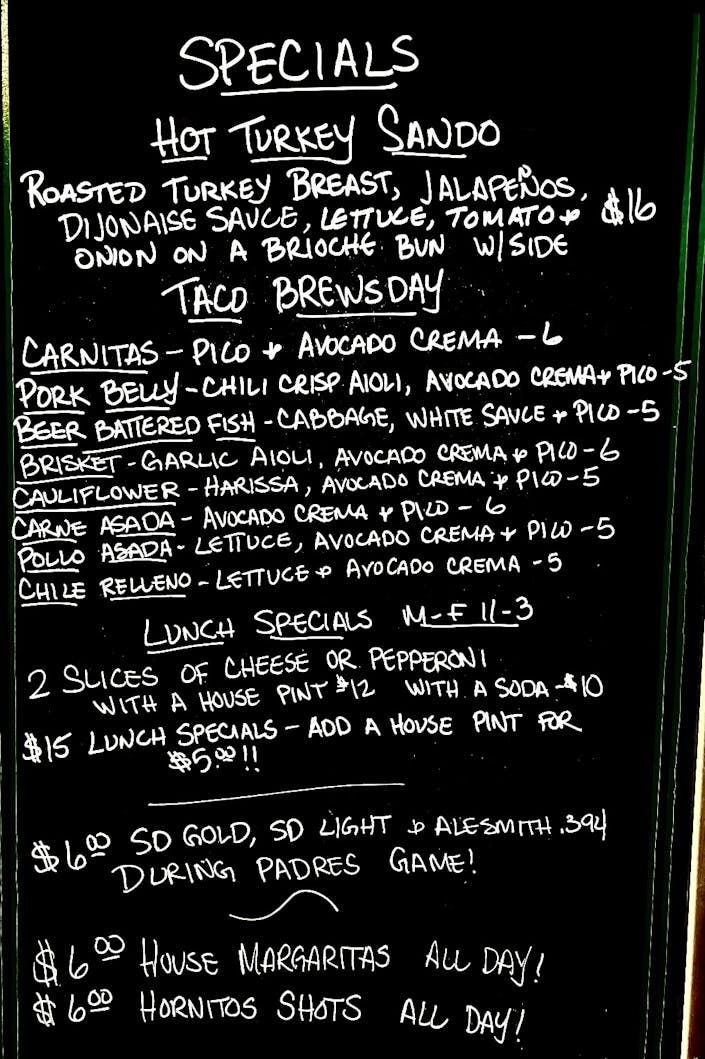 SPECIALS
HOT TURKEY SANDO
ROASTED TURKEY BREAST, JALAPEÑOS,
DIJONAISE SAUCE, LETTUCE, TOMATO & $16
ONION ON A BRIOCHE BUN W/SIDE
TACO BREWSDAY
CARNITAS - PICO & AVOCADO CREMA - 6
PORK BELLY - CHILI CRISP AIOLI, AVOCADO CREMA & PICO - 5
BEER BATTERED FISH - CABBAGE, WHITE SAUCE & PICO - 5
BRISKET - GARLIC AIOLI, AVOCADO CREMA & PICO - 6
CAULIFLOWER - HARISSA, AVOCADO CREMA & PICO - 5
CARNE ASADA - AVOCADO CREMA & PICO - 6
POLLO ASADA - LETTUCE, AVOCADO CREMA & PICO - 5
CHILE RELLENO - LETTUCE & AVOCADO CREMA - 5
LUNCH SPECIALS M-F 11-3
2 SLICES OF CHEESE OR PEPPERONI
WITH A HOUSE PINT $12 WITH A SODA - $10
$15 LUNCH SPECIALS - ADD A HOUSE PINT FOR
$5.00!!
$6.00 SD GOLD, SD LIGHT & ALESMITH .394
DURING PADRES GAME!
$6.00 HOUSE MARGARITAS ALL DAY!
$6.00 HORNITOS SHOTS ALL DAY!